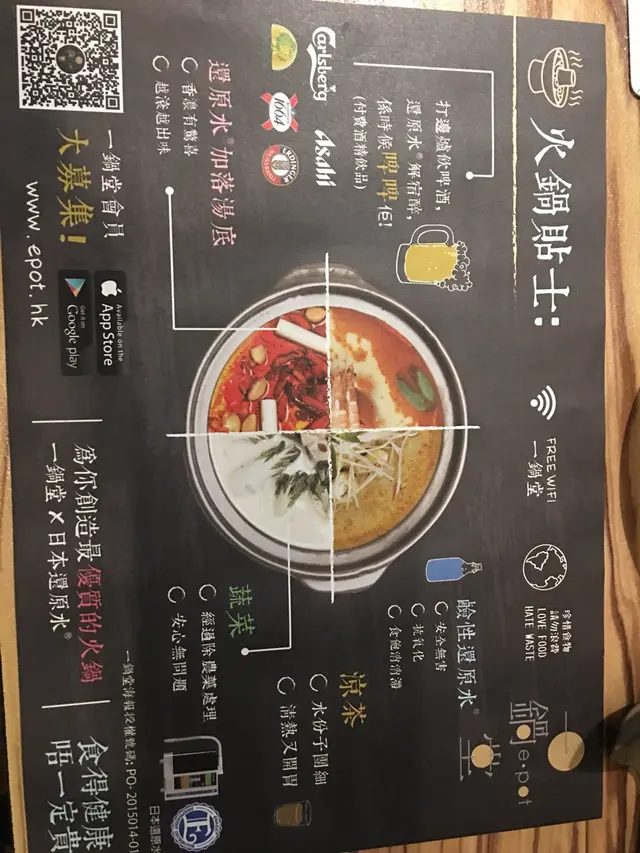 火鍋貼士:
FREE WIFI
一鍋堂
珍惜食物
請勿浪費
LOVE FOOD
HATE WASTE
一鍋堂
e·pot
打邊爐飲啤酒,
還原水®解宿醉,
係時候啤啤佢!
(付費酒精飲品)
Carlsberg
1664
Asahi
還原水®加落湯底
香濃有驚喜
越滾越出味
鹼性還原水®
安全無害
抗氧化
食極消滯
涼茶
水份子團細
清熱又開胃
蔬菜
經過除農藥處理
安心無問題
一鍋堂會員
大募集!
www.epot.hk
Available on the
App Store
Get it on
Google play
為你創造最優質的火鍋
一鍋堂 X 日本還原水®
一鍋堂海報授權號碼: PO-2015014-01
食得健康
唔一定貴
日本還原水